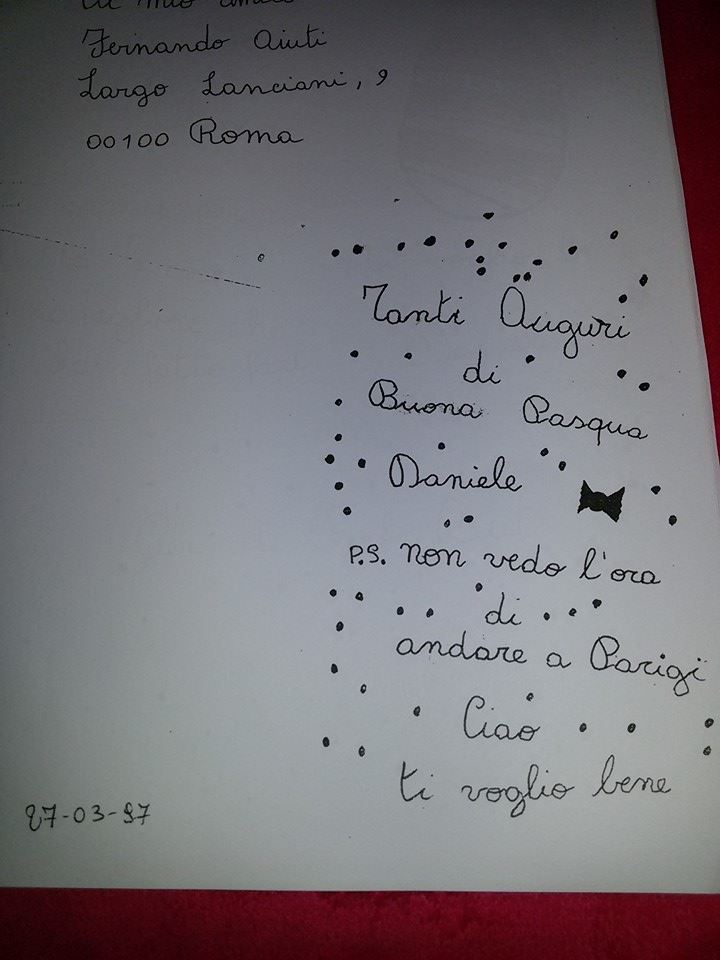 Al mio amico
Fernando Aiuti
Largo Lanciani, 9
00100 Roma
Tanti Auguri
di
Buona Pasqua
Daniele
P.S. non vedo l'ora
di
andare a Parigi
Ciao
ti voglio bene
27-03-97